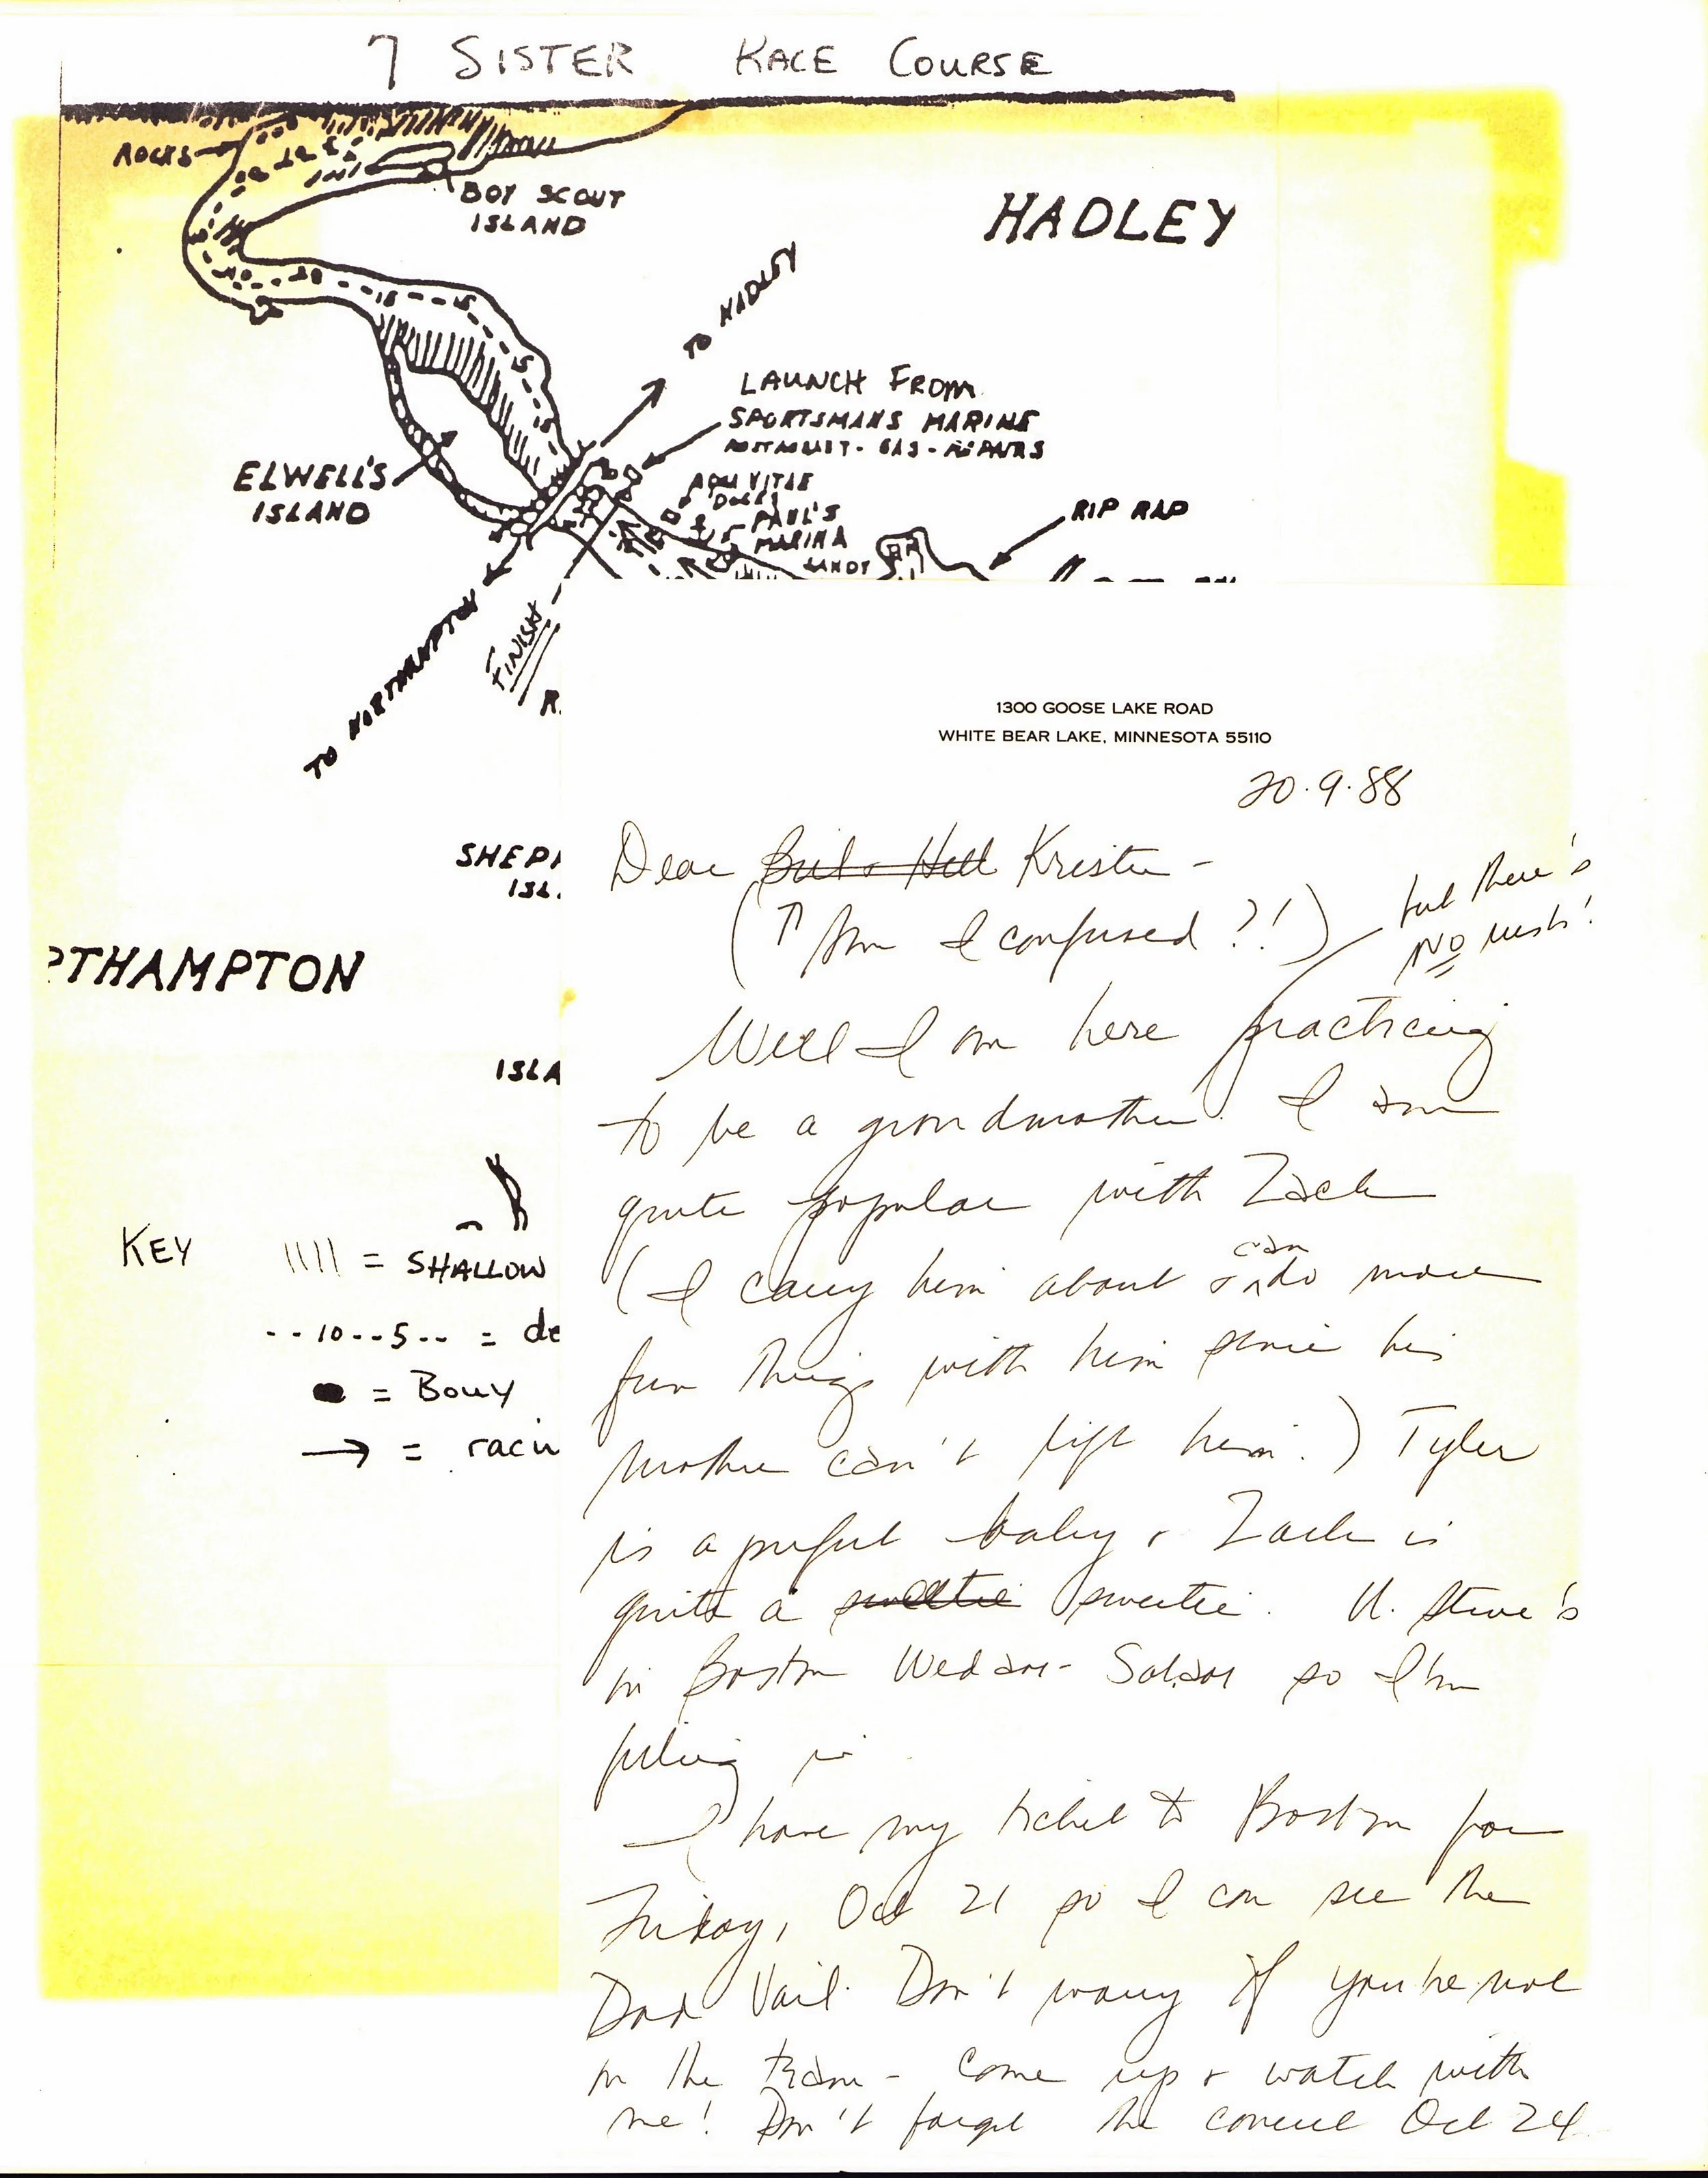 7 SISTER RACE COURSE
ROCKS
BOY SCOUT
ISLAND
HADLEY
TO HADLEY
LAUNCH FROM
SPORTSMANS MARINE
GAS - REPAIRS
ELWELL'S
ISLAND
AQUA VITAE
DOCKS
PAUL'S
MARINA
SANDY
RIP RAP
TO NORTHAMPTON
FINISH
R.
SHEP
ISL.
RTHAMPTON
ISLA
KEY
|||| = SHALLOW
--10--5-- = de
= BOUY
→ = racin
1300 GOOSE LAKE ROAD
WHITE BEAR LAKE, MINNESOTA 55110
20.9.88
Dear Kristin -
(↑ Am I confused ?!)
but there's
NO rush!
Well I am here practicing
to be a grandmother. I am
quite popular with Zach
(I carry him about & can do more
fun things with him since his
mother can't lift him.) Tyler
is a perfect baby & Zach is
quite a sweetie sweetie. U. Steve's
in Boston Wed am - Sat am so I'm
filling in.
I have my ticket to Boston for
Friday, Oct 21 so I can see the
Dad Vail. Don't worry if you're not
on the team - come up & watch with
me! Don't forget the concert Oct 24